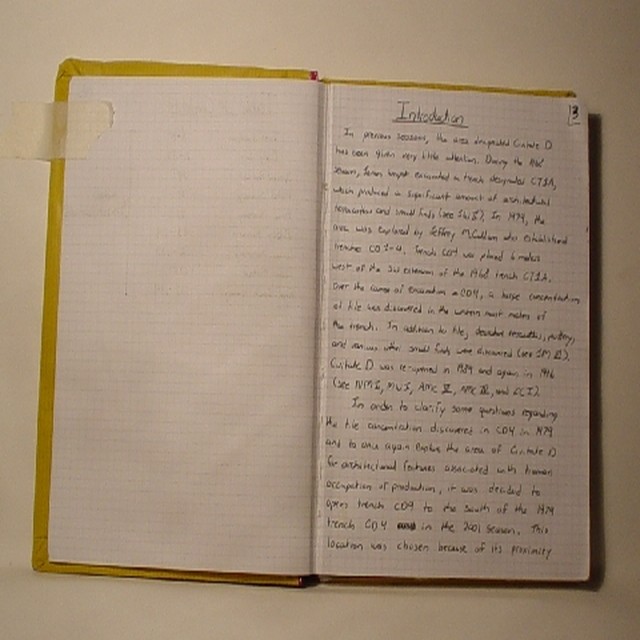 3
Introduction
In previous seasons, the area designated Civitate D
has been given very little attention. During the 1968
season, excavated a trench designated CT1A,
which produced a significant amount of architectural
terracottas and small finds (see). In 1979, the
area was explored by Jeffrey McClellan who established
trenches CD 1-4. Trench CD4 was placed 6 meters
west of the SW extension of the 1968 trench CT1A.
Over the course of excavation in CD4, a large concentration
of tile was discovered in the western most meters of
the trench. In addition to tile, decorated terracottas, pottery,
and various other small finds were discovered (see JM II).
Civitate D was re-opened in 1989 and again in 1996
(see NM I, MW I, AMC II, AMC III, and EC I).
In order to clarify some questions regarding
the tile concentration discovered in CD4 in 1979
and to once again explore the area of Civitate D
for architectural features associated with human
occupation or production, it was decided to
open trench CD9 to the south of the 1979
trench CD4 in the 2001 season. This
location was chosen because of its proximity